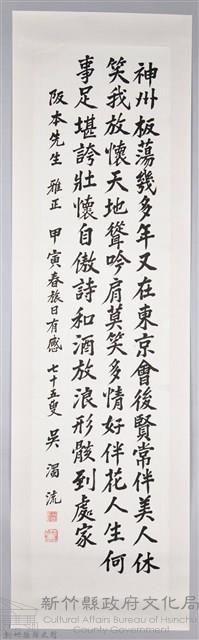 神州板蕩幾多年又在東京會後賢常伴美人休
笑我放懷天地聳吟肩莫笑多情好伴花人生何
事足堪誇壯懷自傲詩和酒放浪形骸到處家
阪本先生 雅正 甲寅春旅日有感 七十五叟 吳濁流
新竹縣政府文化局
Cultural Affairs Bureau of Hsinchu
County Government